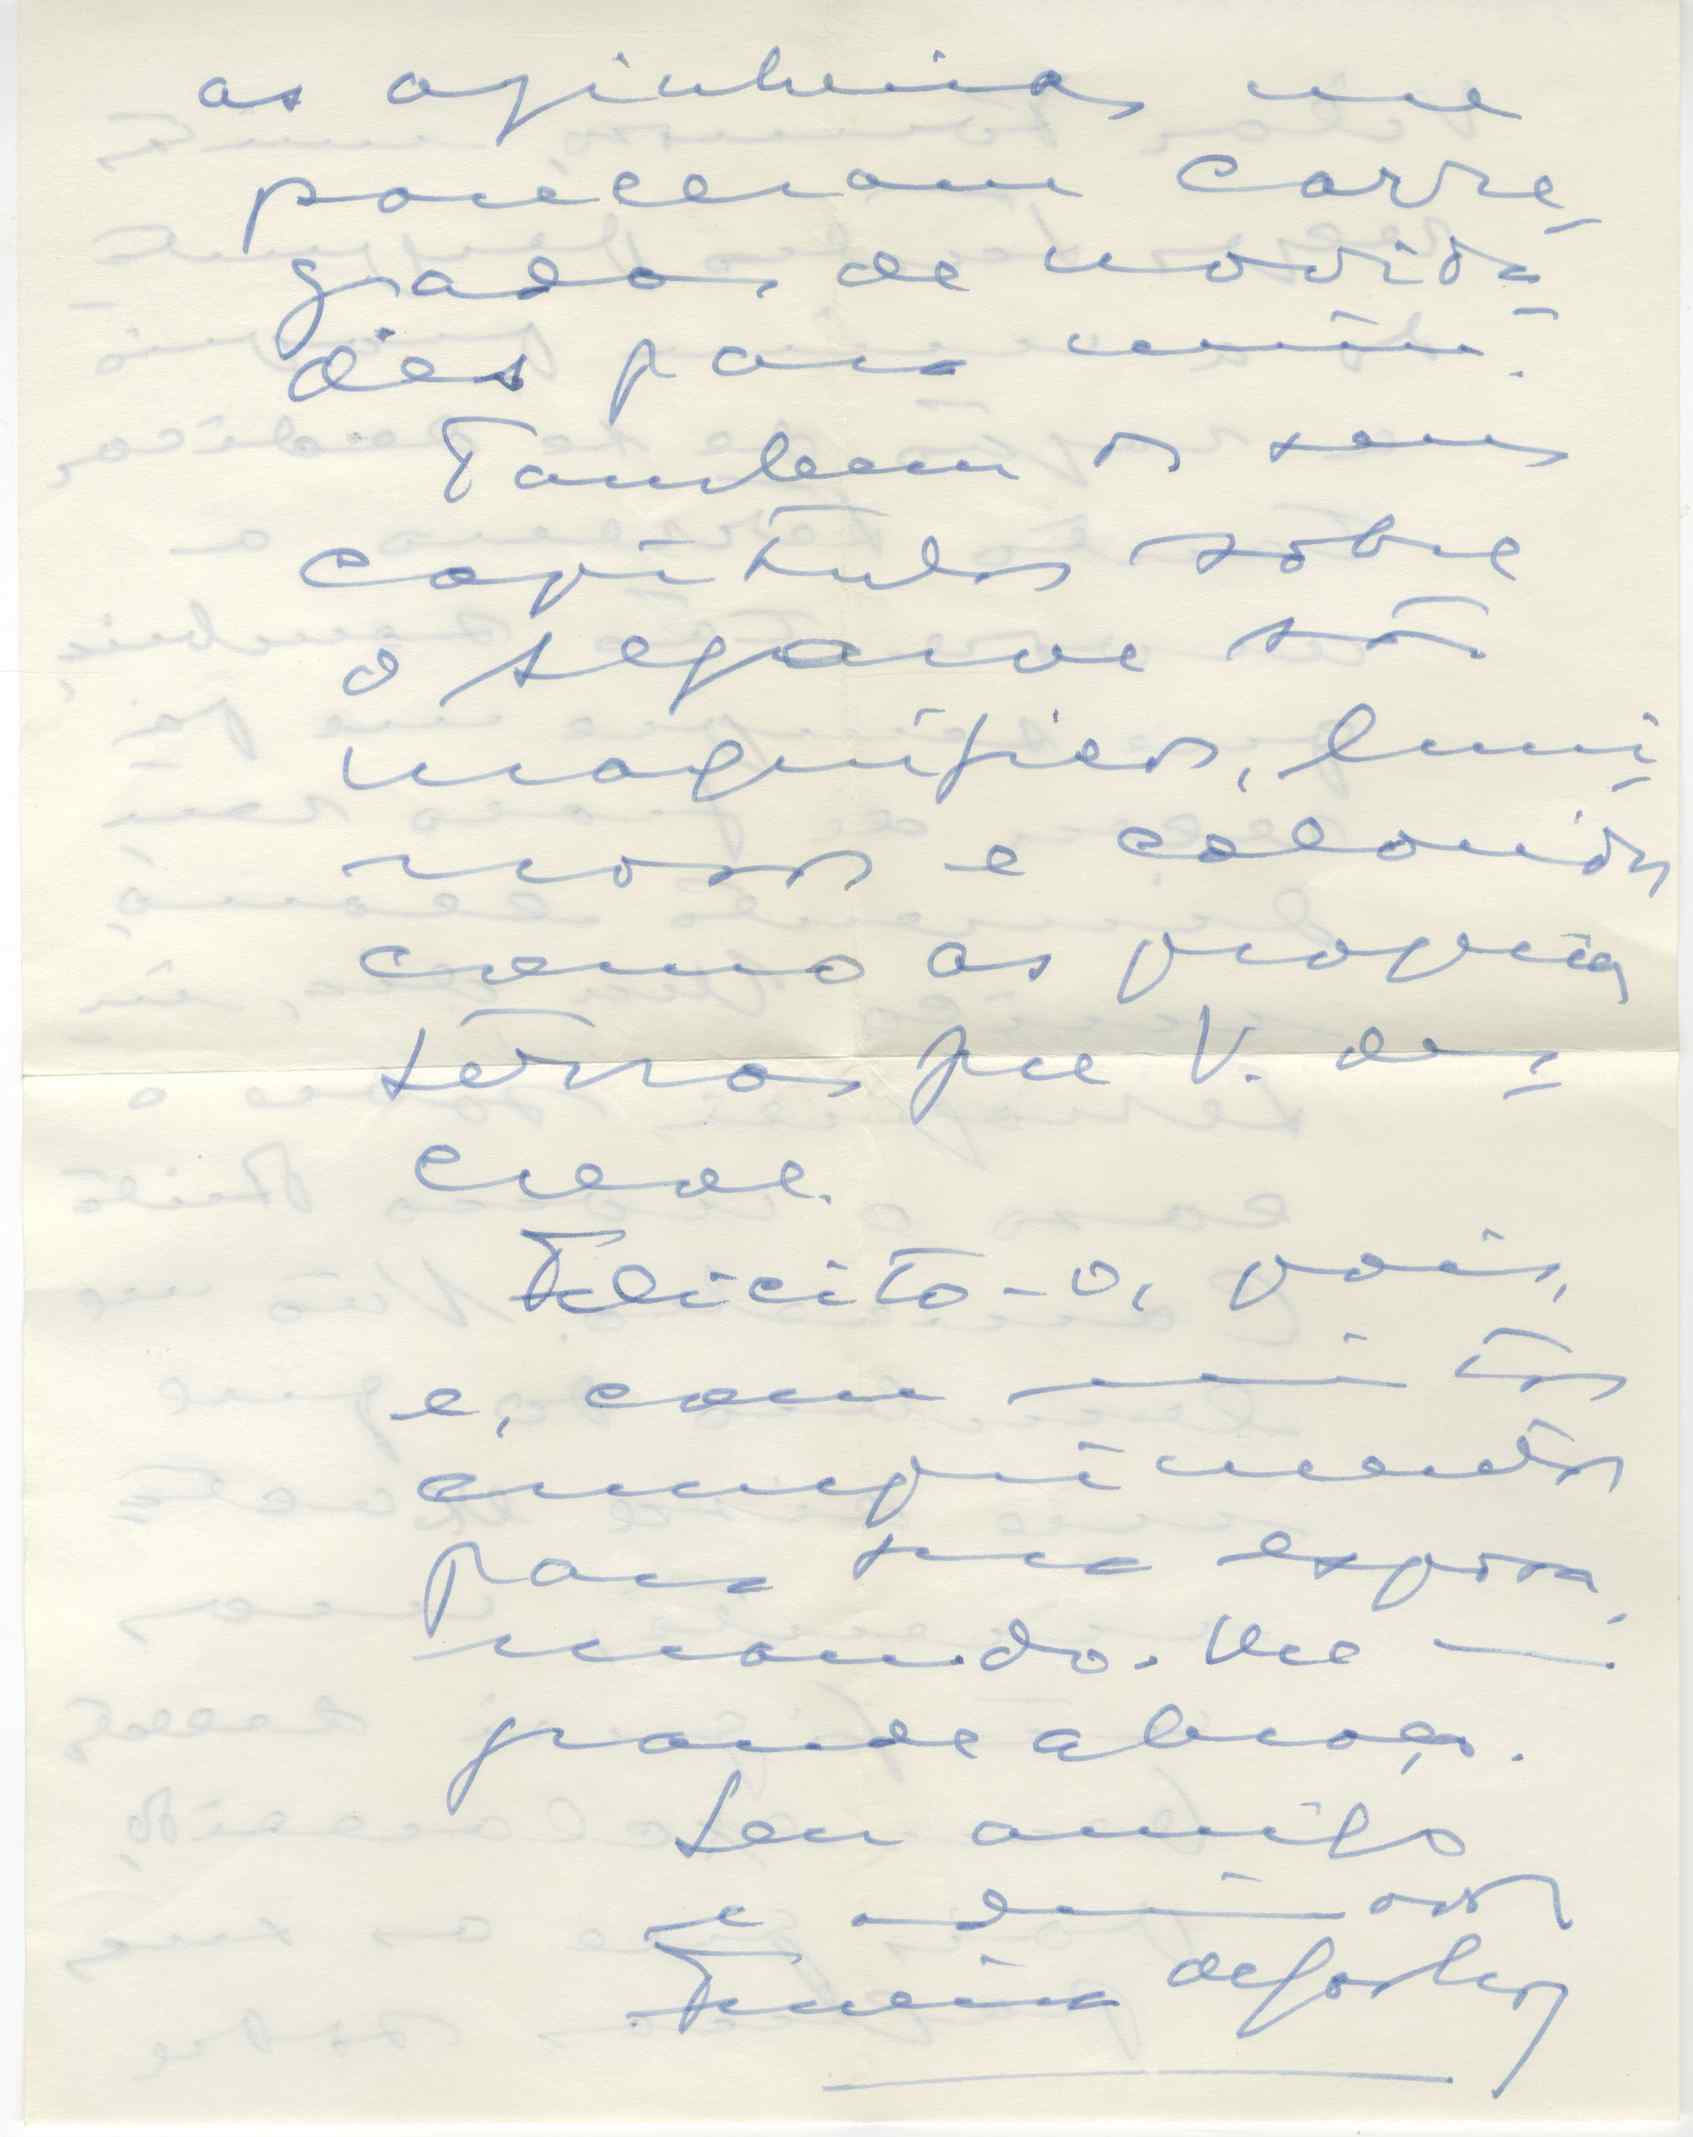 as azinheiras me
pareceram carre-
gadas de novida-
des para mim.
Tambem os seus
capítulos sobre
o Algarve são
magníficos, lumi-
nosos e coloridos
como as proprias
terras que V. des-
creve.
Felicito-o, pois,
e, com muitos
cumprimentos
para sua esposa,
mando-lhe um
grande abraço.
Seu amigo
e admirador
Ferreira de Castro